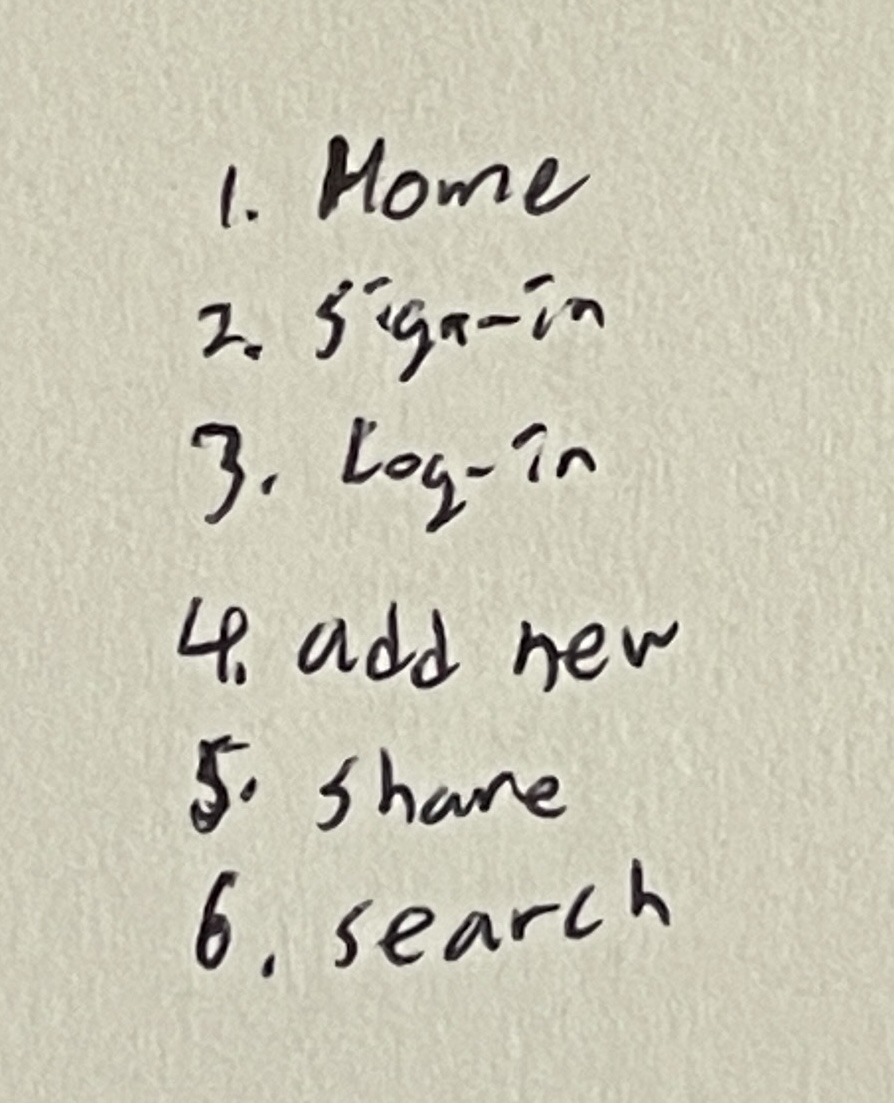 1. Home
2. Sign-in
3. Log-in
4. add new
5. share
6. search